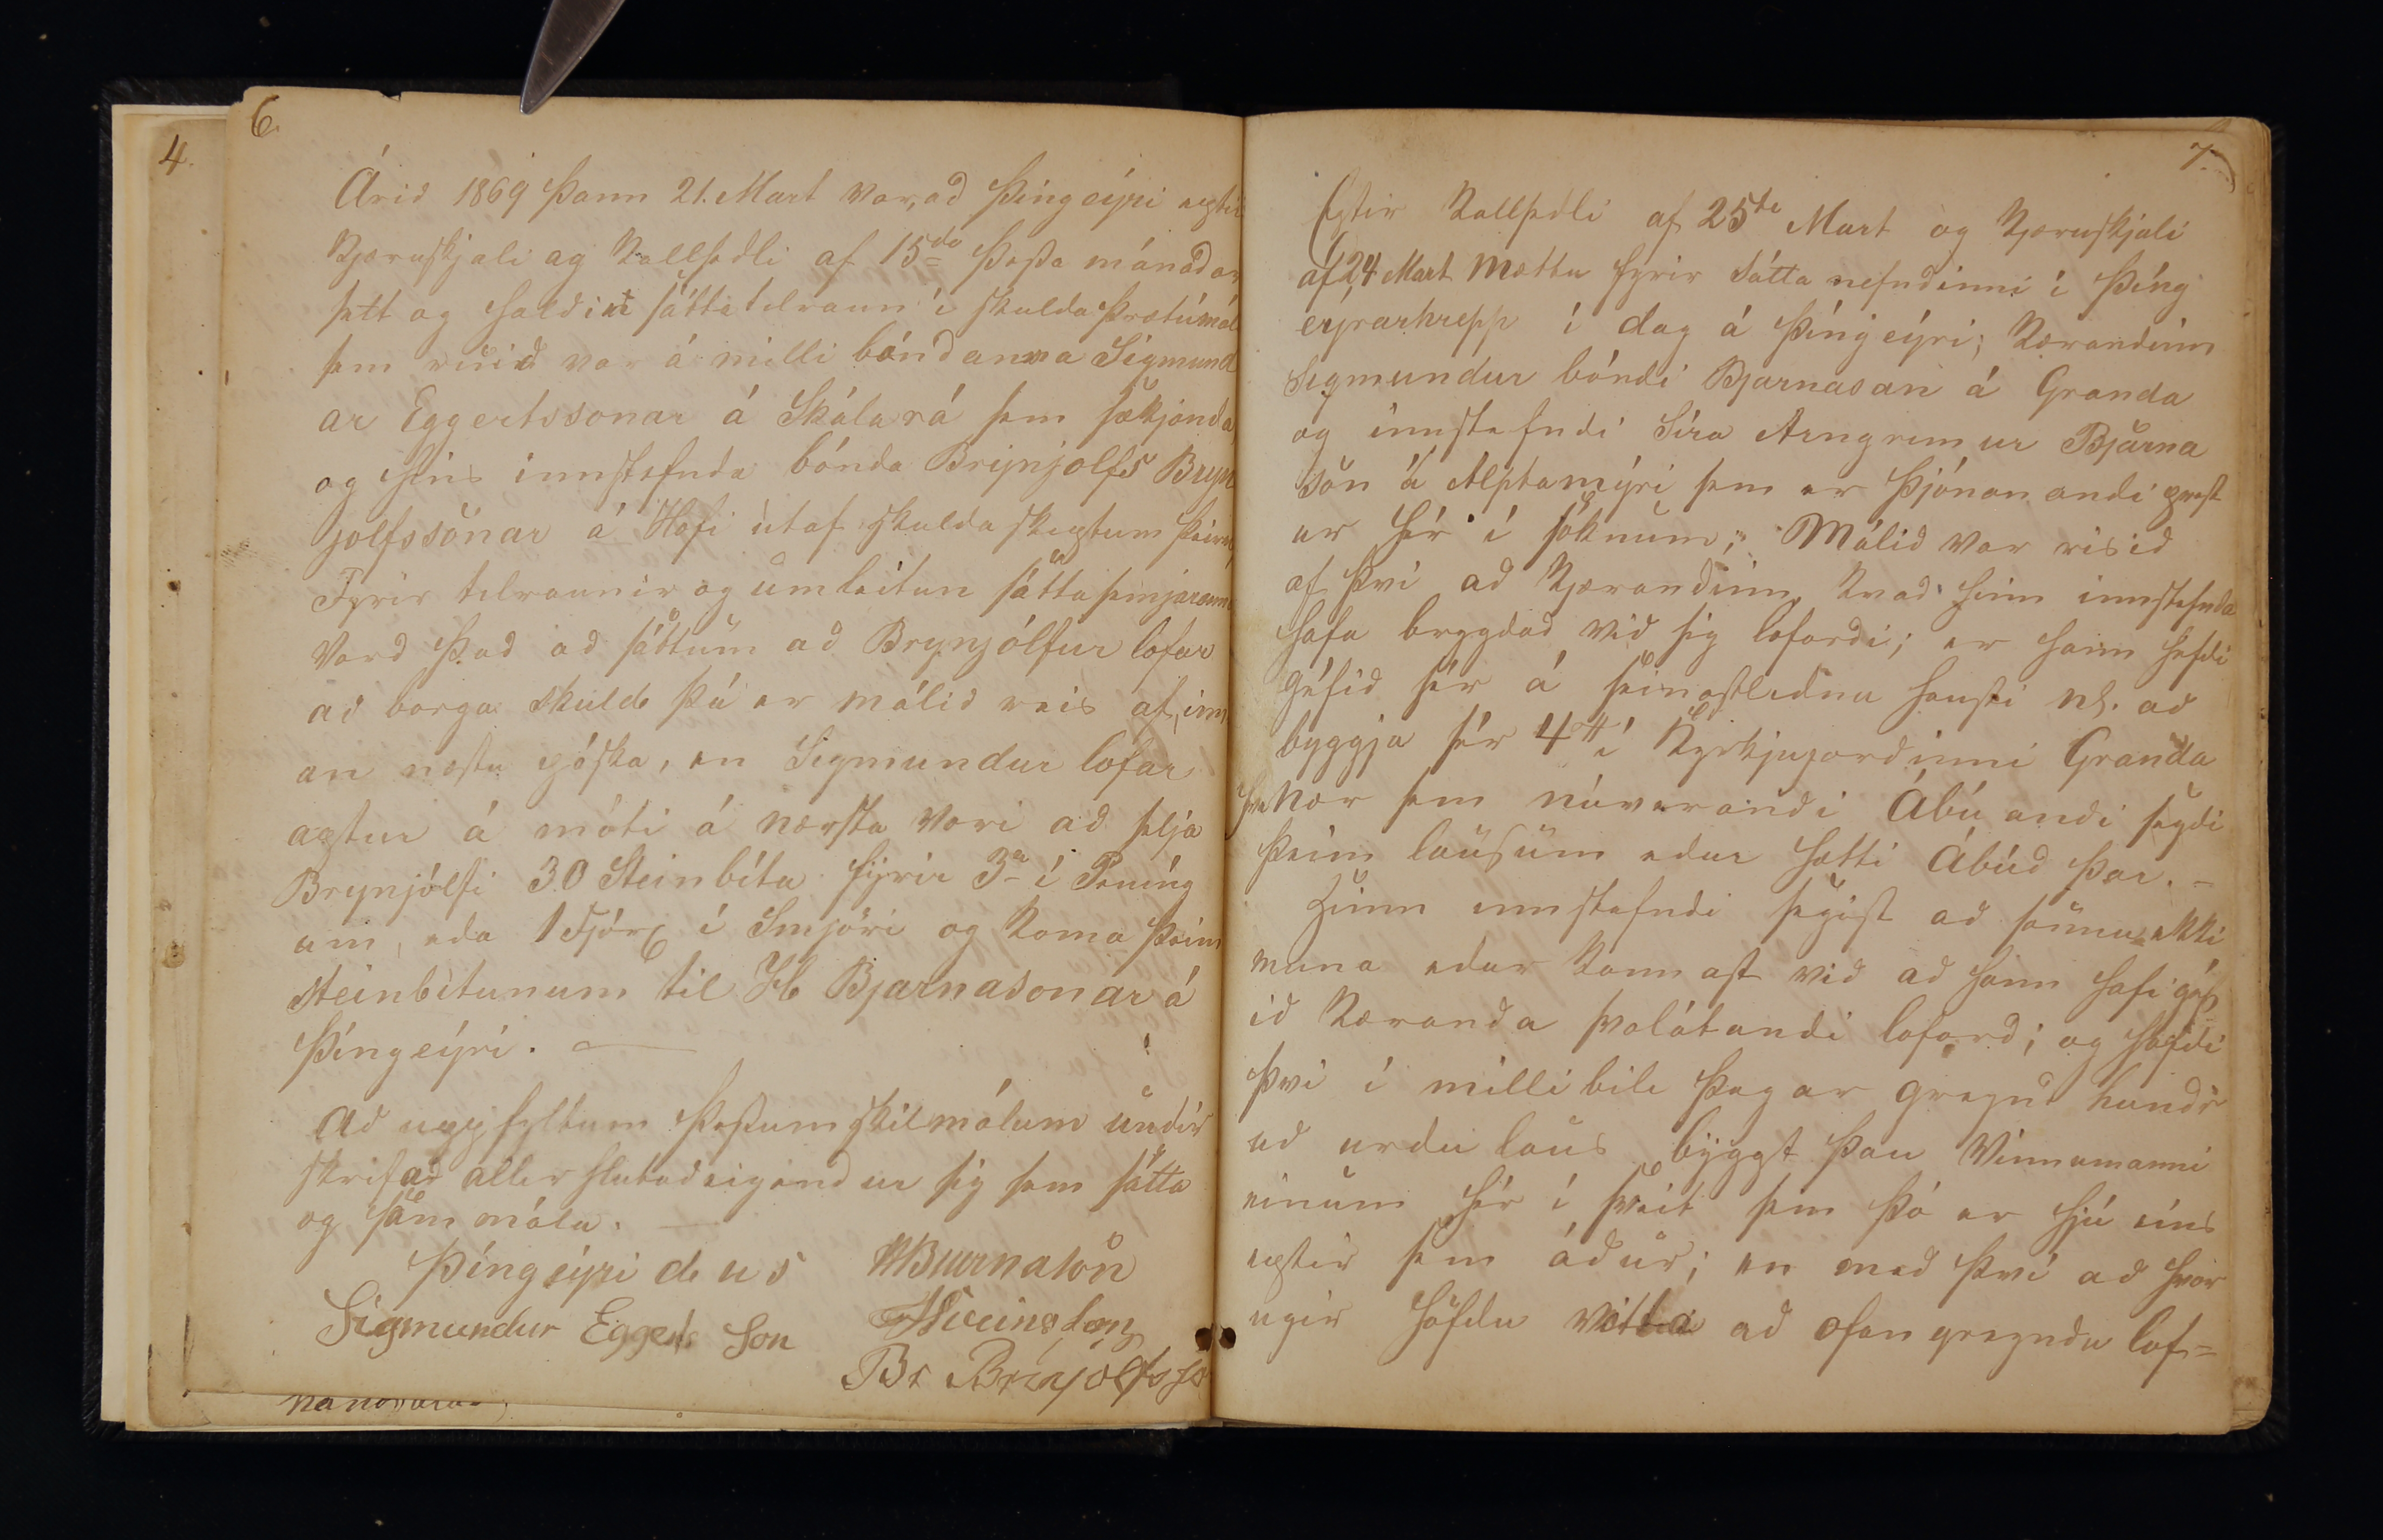 4.
6.
Árið 1869 þann 21. Mart var, að Þíngeýri eptir
Kjæruskjali og Kallseðli af 15da þessa mánaðar
sett og haldin sáttatilraun í skuldaþrætumáli
sem risið var á milli bóndanna Sigmund
ar Eggertssonar á Skálará sem sækjanda
og hins innstefnda bónda Brynjolfs Bryn
jolfssonar á Hofi útaf skuldaskiptum þeirra,
Fyrir tilraunir og umleitun sáttasemjaranna
Varð það að sáttum að Brynjólfur lofar
að borga skuld þá er málið reis af, inn
an næstu páska, en Sigmundur lofar
aptur á móti á næsta vori að selja
Brynjólfi 30 Steinbíta fyrir 3 í Peníng
um, eða 1 Fjórð í Smjöri og koma þeim
steinbítunum til H Bjarnasonar á
Þíngeýri.
Að uppfyltum þessum skilmálum undir
skrifað allir hlutaðeigendur sig sem sátta
og sammála.
Þíngeýri d u s HBjarnason
Sigmundur Eggerts son
Br Brinjolfsso
7.
Eptir Kallseðli af 25da Mart og Kjæruskjali
af 24 Mart mættu fyrir sátta nefndinni í Þíng
eyrarhrepp í dag á Þíngeýri; Kærandinn
Sigmundur bóndi Bjarnason á Granda
og innstefndi Síra Arngrimur Bjarna
son á Alptamýri sem er þjónanandi prest
ur hér í söknum; Málið var risið
af því að Kjærandinn kvað hinn innstefnda
hafa brygðað við sig loforði; er hann hefði
géfið sér á seinastliðnu hausti nl. að
byggja sér 4 í Kyrkjujorðinni Granda
hve nær sem núverandi Ábúandi segði
þeim lausum eður hætti Ábúð þar. -
Hinn innstefndi segist að sönnu ekki
muna eður kannast við að hann hafi géf
ið Kæranda svolátandi loforð; og hefði
því í millibili þegar greind hundr
uð urðu laus byggt þau Vinnumanni
einum hér í sveit sem þó er hjú eins
eptir sem áður; en með því að hvor
ugir höfðu vitta að ofangreindu lof=